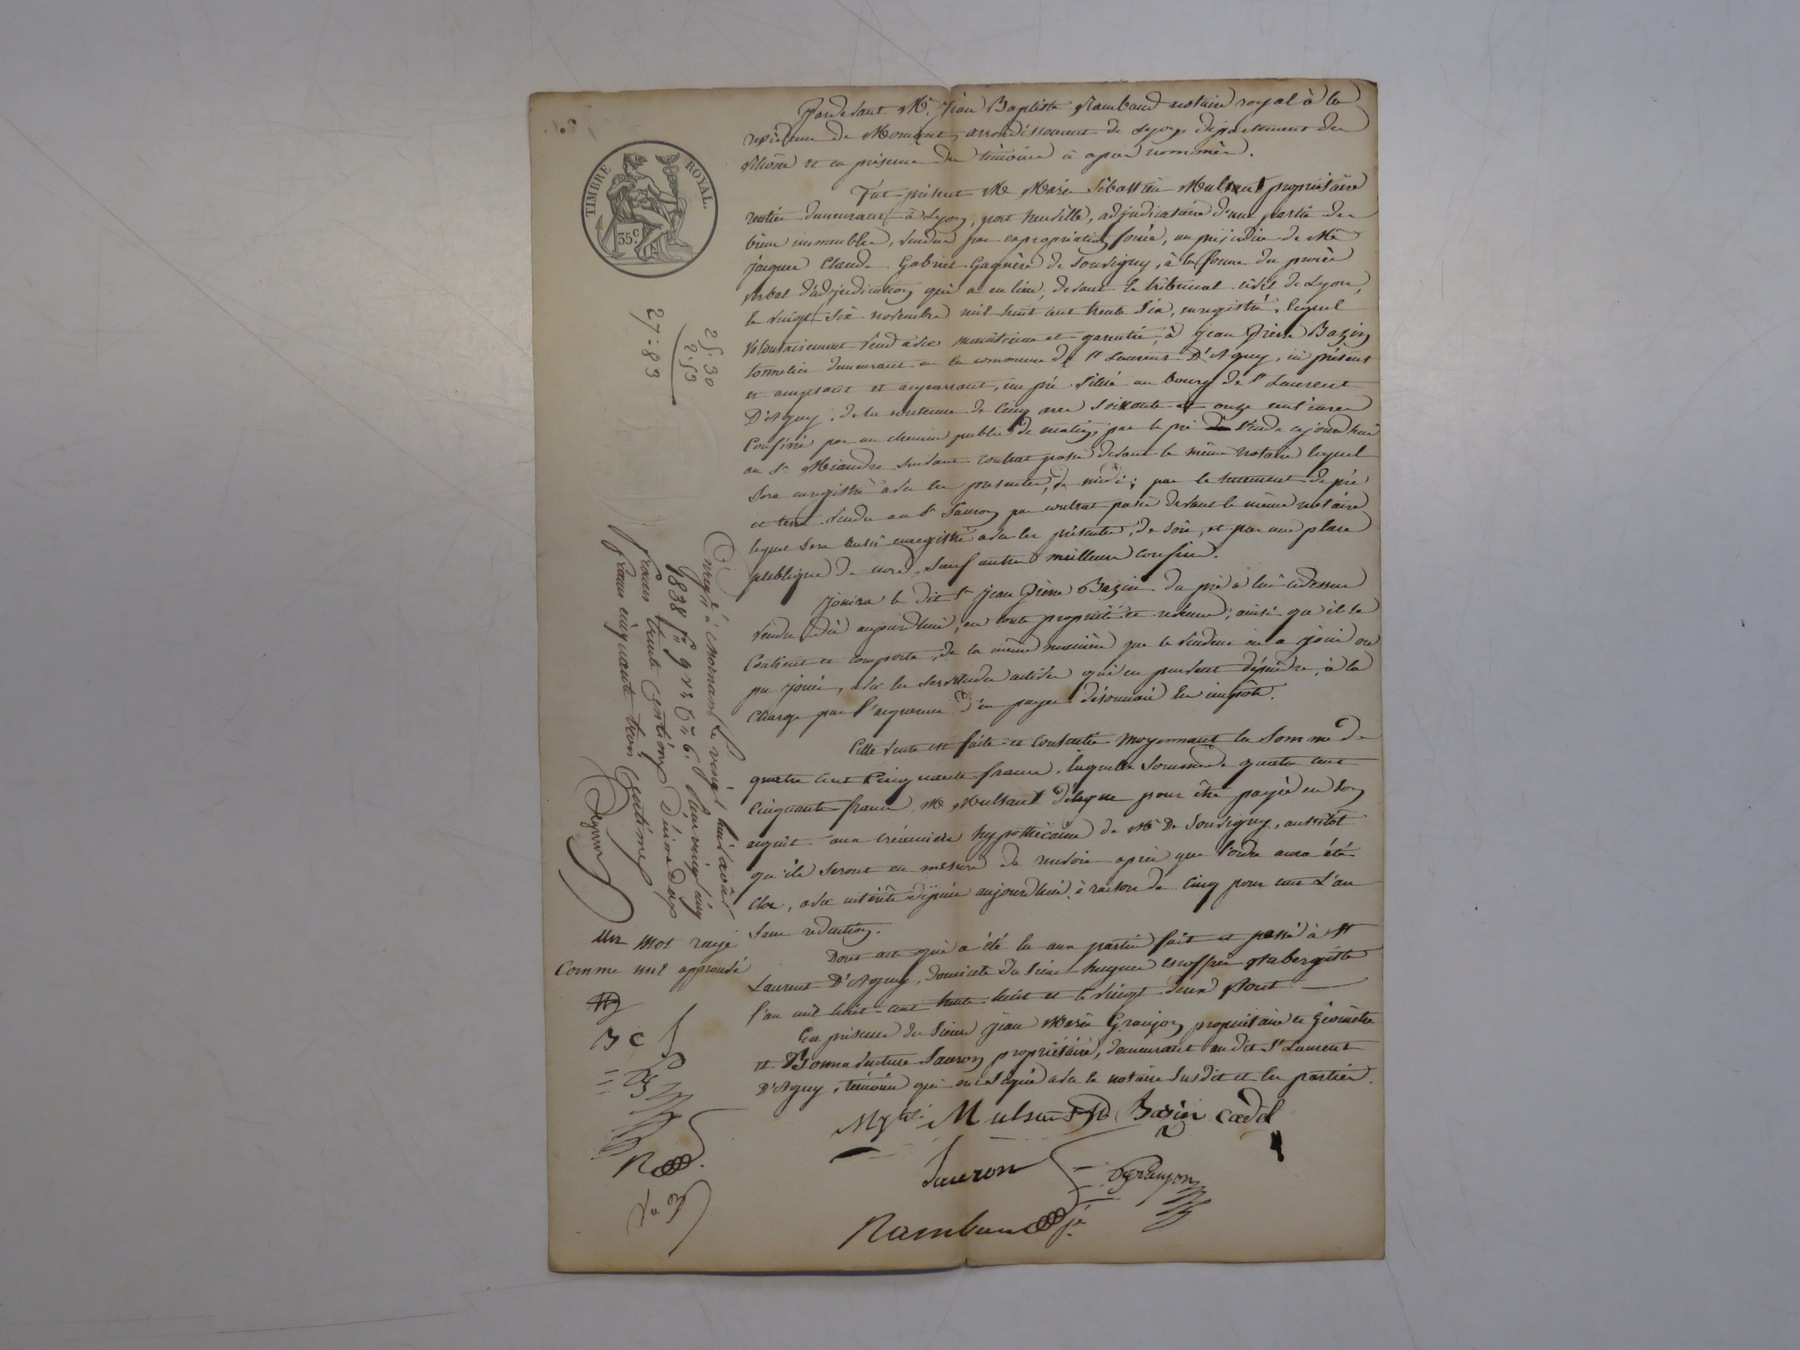 TIMBRE ROYAL.
35 c
Pardevant Me. Jean Baptiste Rambaud notaire royal à la
résidence de Mornant, arrondissement de Lyon, département du
Rhône et en présence des témoins ci après nommés.
Fut présent Mr Marie Sébastien Mulsant propriétaire
rentier demeurant à Lyon, adjudicataire d'une partie des
biens immeubles, vendus par expropriation forcée, au préjudice de Mr
jacques Claude Gabriel Gagnère de Souvigny, à la forme du procès
verbal d'adjudication qui a eu lieu, devant le tribunal civil de Lyon,
le vingt six novembre mil huit cent trente six, enregistré, lequel
volontairement vend avec maintenue et garantie, à jean Pierre Bazin
tonnelier demeurant en la commune de St Laurent D'Agny, ici présent
et acceptant et acquerrant, un pré situé au bourg de St Laurent
D'Agny, de la contenue de Cinq ares soixante et onze centiares
Confiné par un chemin public de matin, par le pré vendu cejourd'hui
au Sr Méandre suivant contrat passé devant le même notaire lequel
sera enregistré avec les présentes, de midi; par le tènement de pré
et terre vendu au Sr Sauron par contrat passé devant le même notaire
lequel sera aussi enregistré avec les présentes, de soir, et par une place
publique de nord, sauf autres meilleurs confins.
Jouira le dit Sr jean Pierre Bazin du pré à lui cidessus
vendu dès aujourd'hui, en toute propriété et revenus; ainsi qu'il se
Contient et comporte, de la même manière que le vendeur en a joui ou
pu jouir, avec les servitudes actives qui en peuvent dépendre, à la
charge par l'acquereur d'en payer désormais les impôts.
Cette vente est faite et consentie moyennant la somme de
quatre cent Cinquante francs, laquelle somme de quatre cent
Cinquante francs, Mr Mulsant délegue pour être payée en son
acquit aux créanciers hypothécaires de Mr De Souvigny, aussitôt
qu'ils seront en mesure de recevoir après que l'ordre aura été
clos, avec intérêts dépuis aujourd'hui à raison de Cinq pour cent L'an
sans réduction.
Dont acte qui a été lu aux parties fait et passé à St
Laurent D'Agny, domicile du Sieur hugues escoffier Aubergiste
l'an mil huit-cent trente huit et le vingt deux Aout
En présence des Sieurs jean Marie Granjon propriétaire et Géomètre
et Bonnaventure Sauron propriétaire, demeurant au dit St Laurent
D'Agny, témoins qui ont signé avec le notaire susdit et les parties.
Mulsant Bazin cadet
Sauron Granjon
Rambaud
27=83
25.30
2.53
Enregtré à Mornant le vingt huit août
1838 fo 9 Ro C 6. Reçu vingt cinq
francs trente centimes Décime deux
francs cinquante trois Centimes
Un mot rayé
Comme nul approuvé
B C